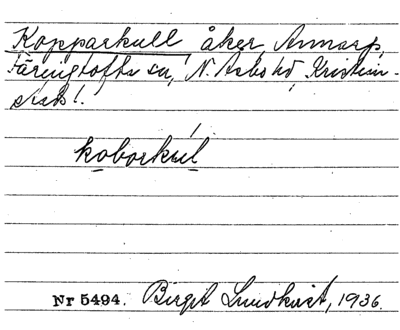 Kopparkull, åker, Annarp,
Färingtofta sn, N. Åsbo hd, Kristian-
stads l.
koborkul
Nr 5494. Birgit Lundkvist, 1936.